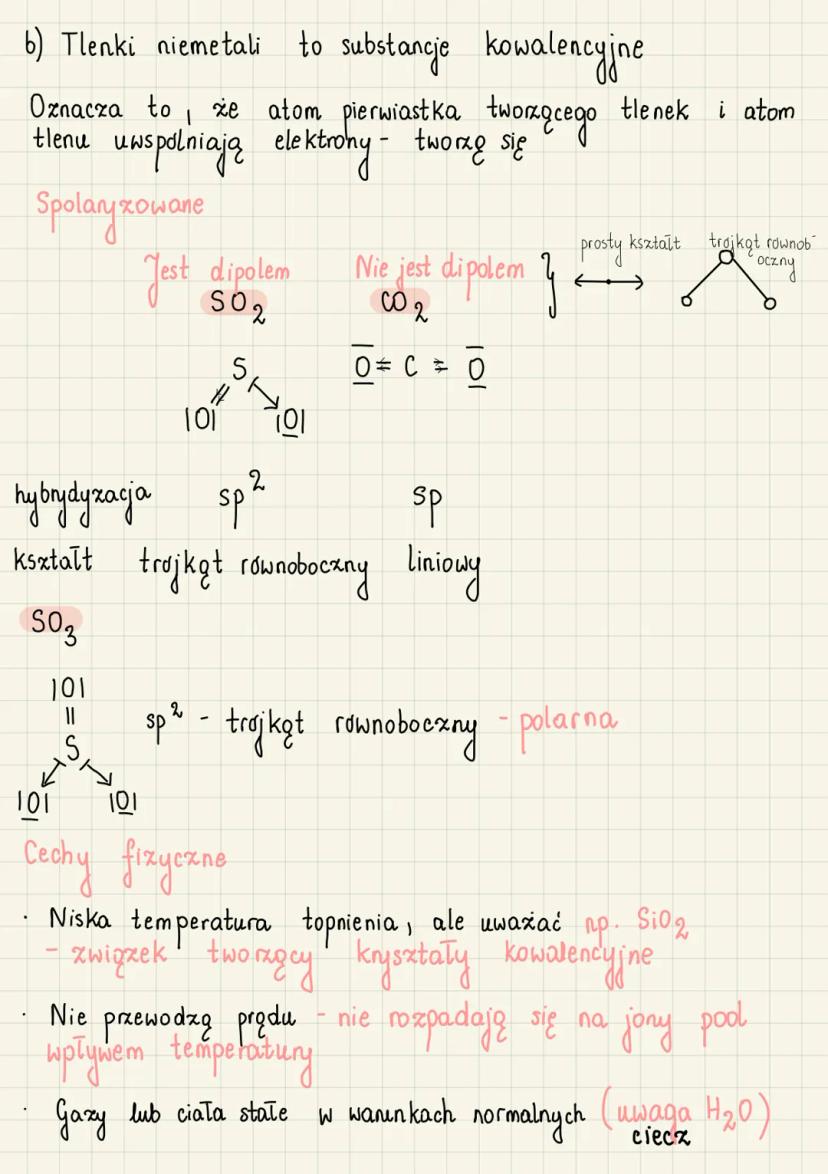 b) Tlenki niemetali to substancje kowalencyjne
Oznacza to, że atom pierwiastka tworzącego tlenek i atom
tlenu uwspólniają elektrony - tworzę się
Spolaryzowane
Jest dipolem Nie jest dipolem } prosty kształt trójkąt równob-
oczny
SO2 CO2
S
|O| |O|
O = C = O
hybrydyzacja sp2 sp
kształt trójkąt równoboczny liniowy
SO3
|O|
||
S
|O| |O|
sp2 - trójkąt równoboczny - polarna
Cechy fizyczne
· Niska temperatura topnienia, ale uważać np. SiO2
- związek tworzący kryształy kowalencyjne
· Nie przewodzą prądu - nie rozpadają się na jony pod
wpływem temperatury
· Gazy lub ciała stałe w warunkach normalnych (uwaga H2O)
ciecz